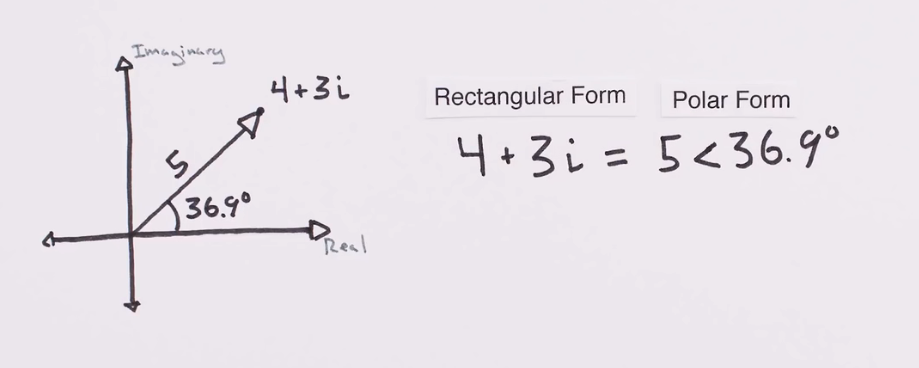 Imaginary
4+3i
5
36.9°
Real
Rectangular Form Polar Form
4+3i = 5<36.9°